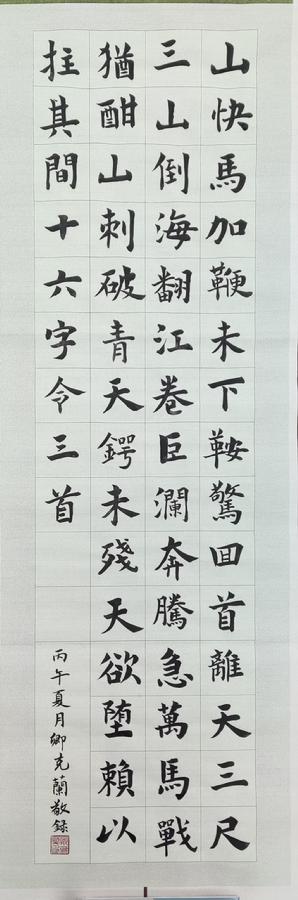 山快馬加鞭未下鞍驚回首離天三尺
三山倒海翻江卷巨瀾奔騰急萬馬戰
猶酣山刺破青天鍔未殘天欲堕賴以
拄其間十六字令三首
丙午夏月卿克蘭敬録